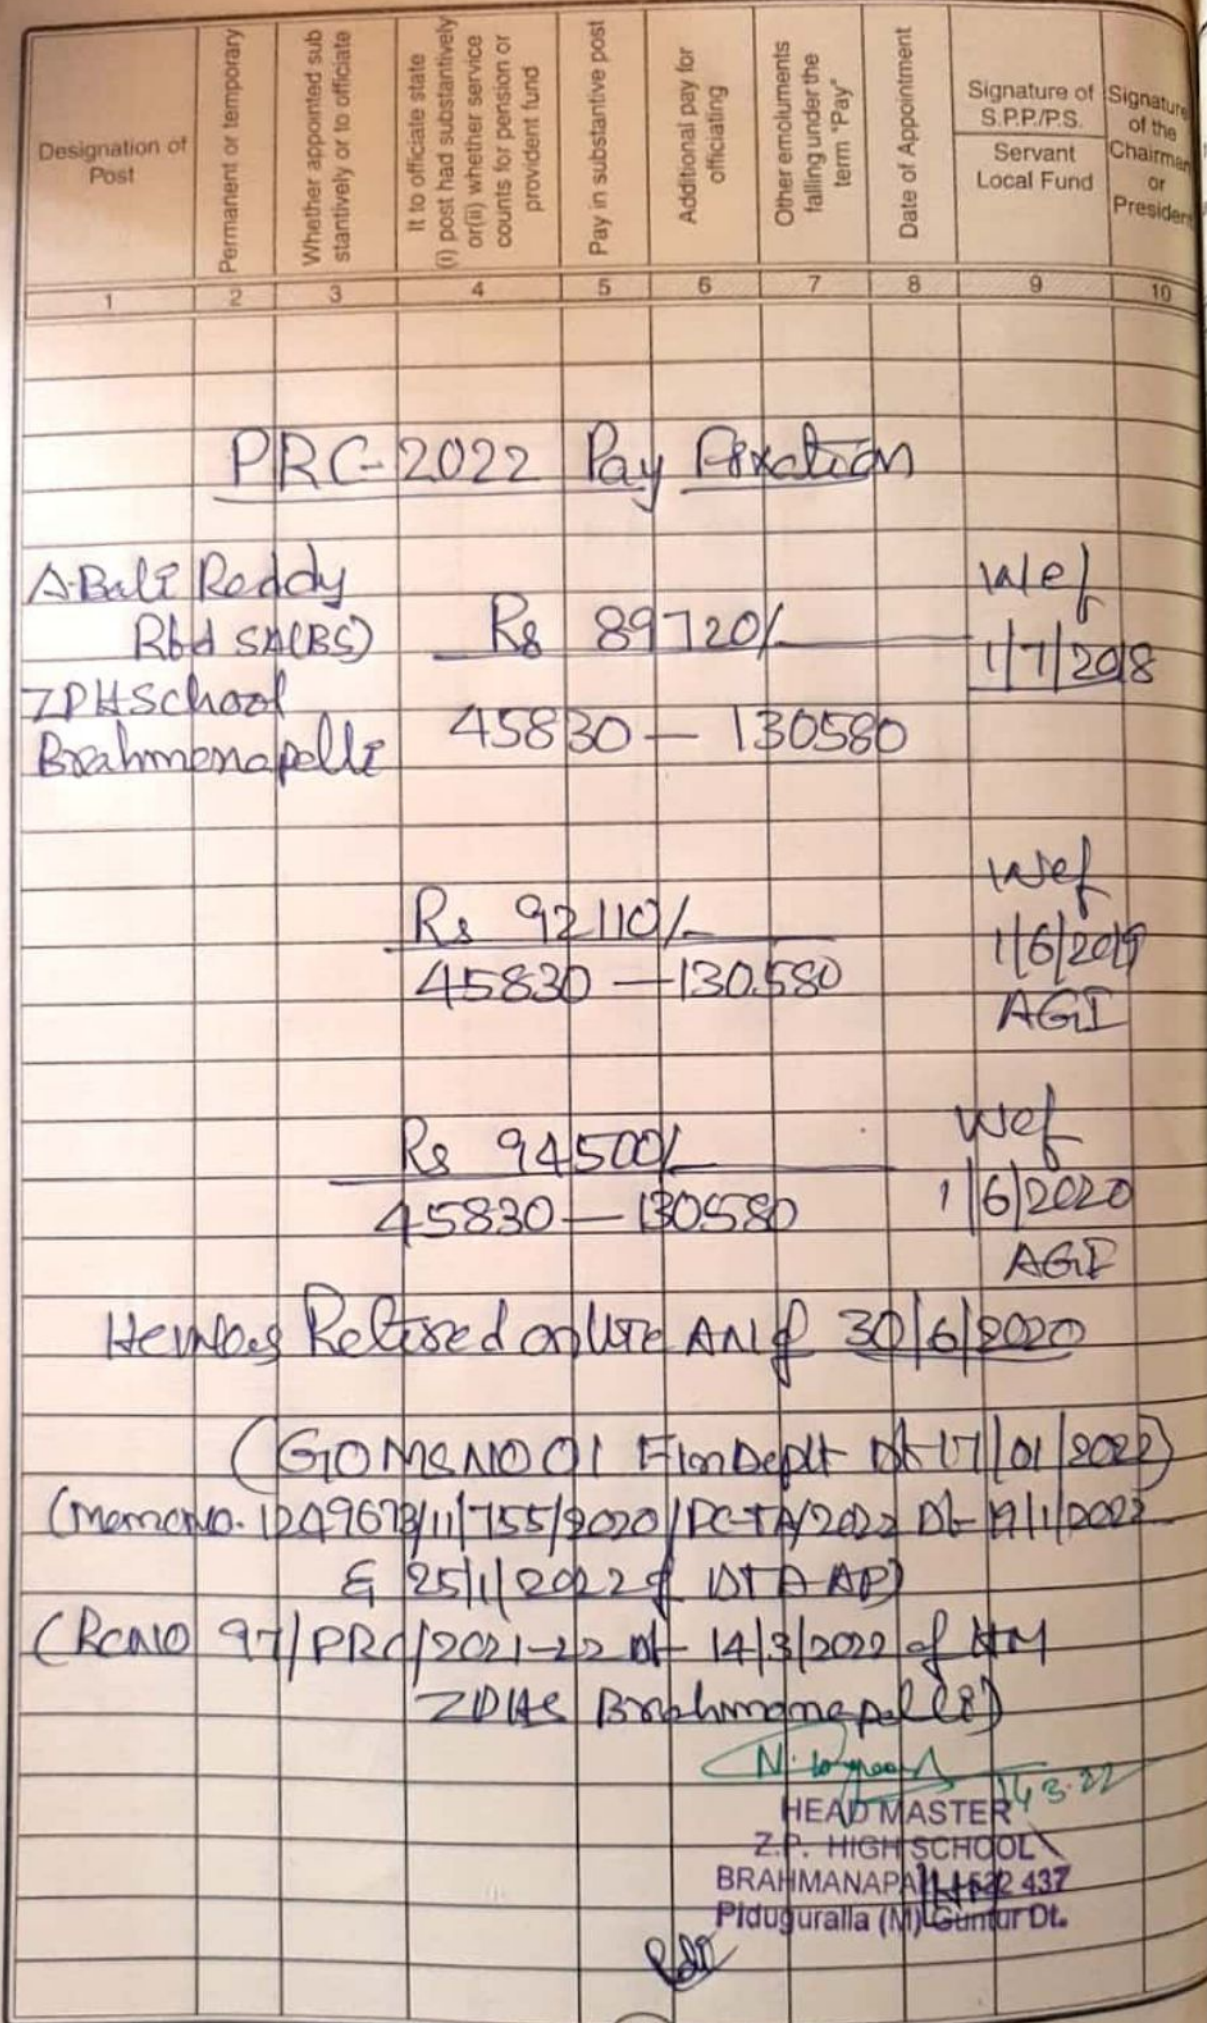 Designation of Post
Permanent or temporary
Whether appointed sub stantively or to officiate
It to officiate state (i) post had substantively or(ii) whether service counts for pension or provident fund
Pay in substantive post
Additional pay for officiating
Other emoluments falling under the term "Pay"
Date of Appointment
Signature of S.P.P./P.S.
Servant Local Fund
Signature of the Chairman or President
1 2 3 4 5 6 7 8 9 10
PRC-2022 Pay Fixation
A.Bali Reddy
Wef
Rtd SA(BS) Rs 89720/-
1/7/2018
ZPHSchool
45830 — 130580
Brahmanapalli
Wef
Rs 92110/-
1/6/2019
45830 — 130580
AGI
Wef
Rs 94500/-
1/6/2020
45830 — 130580
AGI
He was Retired on the AN of 30/6/2020
(GOMSNO 01 Fin Deptt Dt 17/01/2022)
(Memono. 1249673/11/755/2020/PC-TA/2022 Dt 19/1/2022
& 25/1/2022 of DTA AP)
(RCNO 97/PRC/2021-22 Dt 14/3/2022 of HM
ZPHS Brahmanapalli)
14.3.22
HEAD MASTER
Z.P. HIGH SCHOOL
BRAHMANAPALLI-522 437
Piduguralla (M) Guntur Dt.